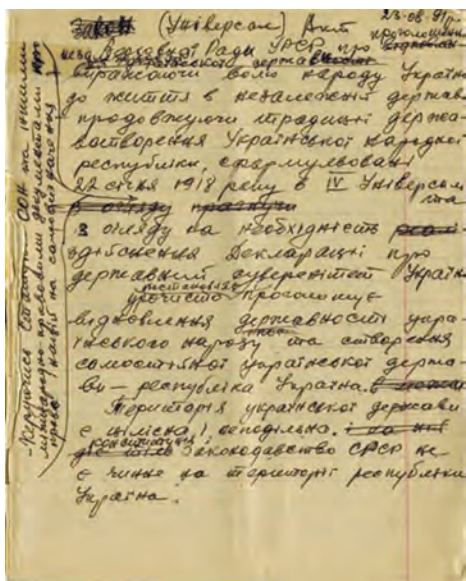 Закон (Універсал) Акт 23-08-91р.
Верховної Ради УРСР про проголошення
української держав
виражаючи волю народу Україн
до життя в незалежній держав
продовжуючи традиції держа-
вотворення Української Народної
республіки, сформульовані
22 січня 1918 року в IV Універсалі
та
з огляду на необхідність реалі-
здійснення Декларації про
державний суверенітет України
урочисто проголошує
відновлення державності укра-
їнського народу та створення
самостійної української держа-
ви – республіка Україна.
Територія української держави
є цілісна і неподільна.
конституція
Законодавство СРСР не
є чинне на території республіки
Україна.
- Керуючись Статутом ООН та іншими
міжнародно-правовими документами про
право націй на самовизначення